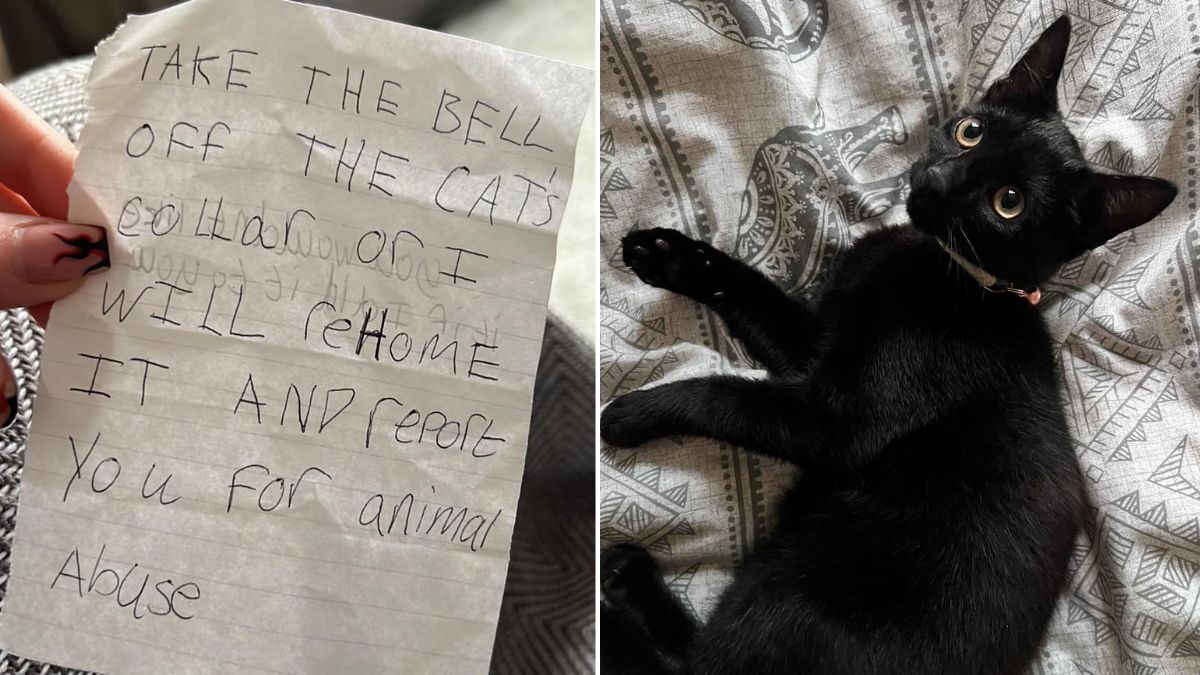 TAKE THE BELL
OFF THE CAT'S
collar or I
WILL reHOME
IT AND report
You For animal
Abuse